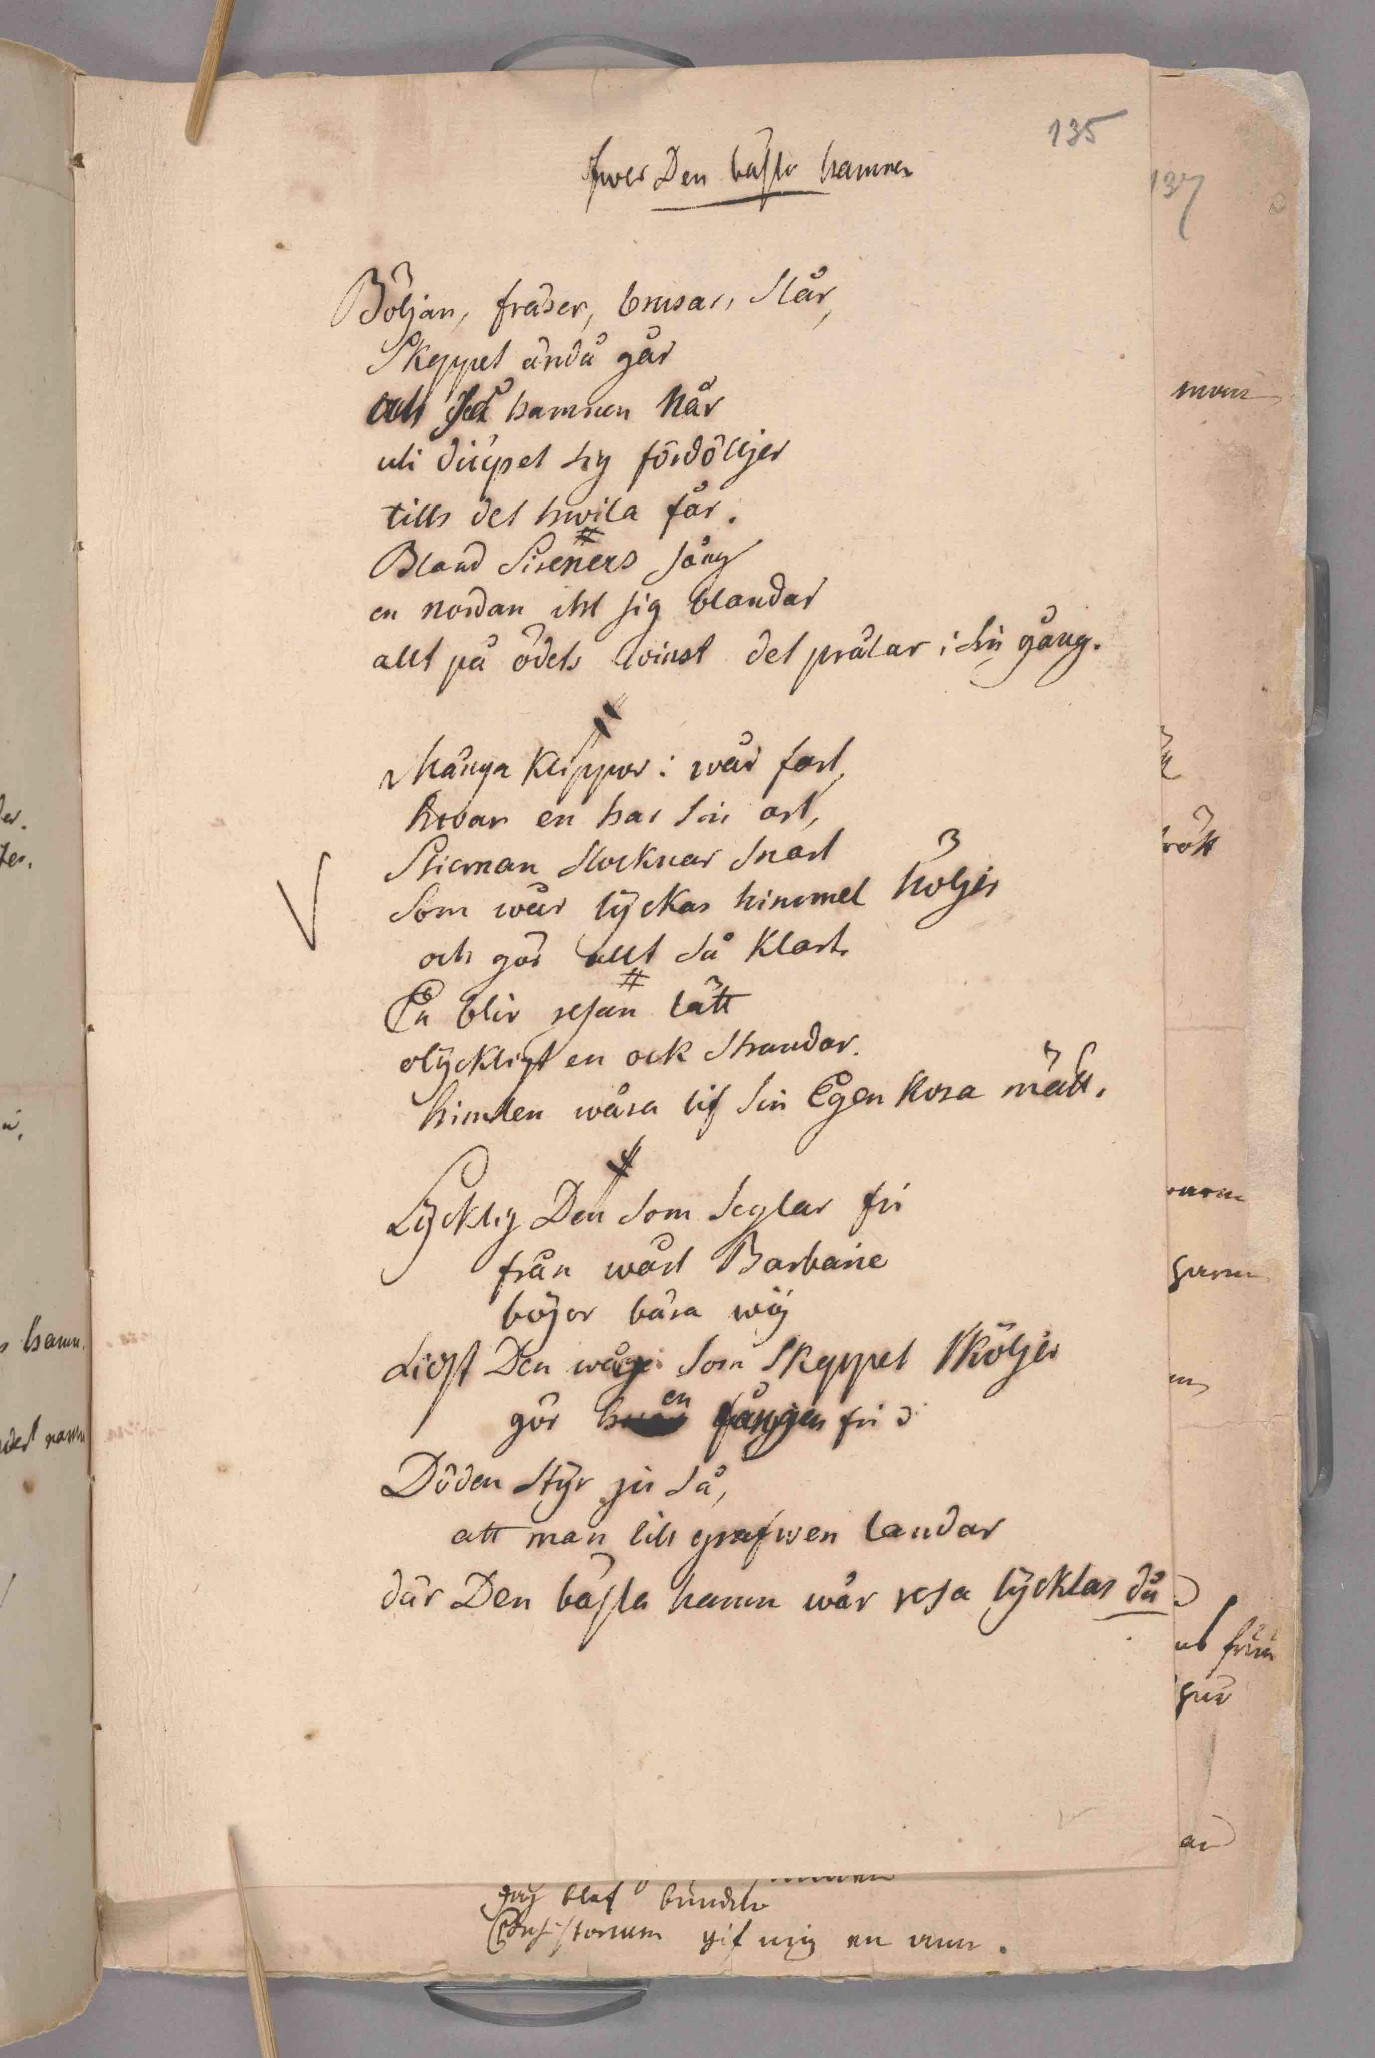 135
öfwer Den bästa hamnen
Böljan, fräser, brusar, Slår,
Skeppet ändå går
och hamnen Når
uti diupet sig fördölljer
tills det hwila får.
Bland Sireners sång
en nordan ihl sig blandar
allt på ödets winst det prålar i sin gång.
Många Klippor i wår fart,
hwar en har sin art,
Stiernan slocknar snart
Som wår lyckas himmel höljer
och gör allt så Klart.
En blir resan lätt
olyckligt en ock strandar.
himlen wåra lif sin Egen Kosa mätt.
Lycklig Den som seglar fri
från wårt Barbarie
böjor bära wij
Likst Den wåg som Skeppet sköljer
gör en fången fri
Döden styr ju så,
att man till grafwen landar
där Den bästa hamn wår resa lycktas då
137
hamn.
jag blef
Consistorium gif mig en